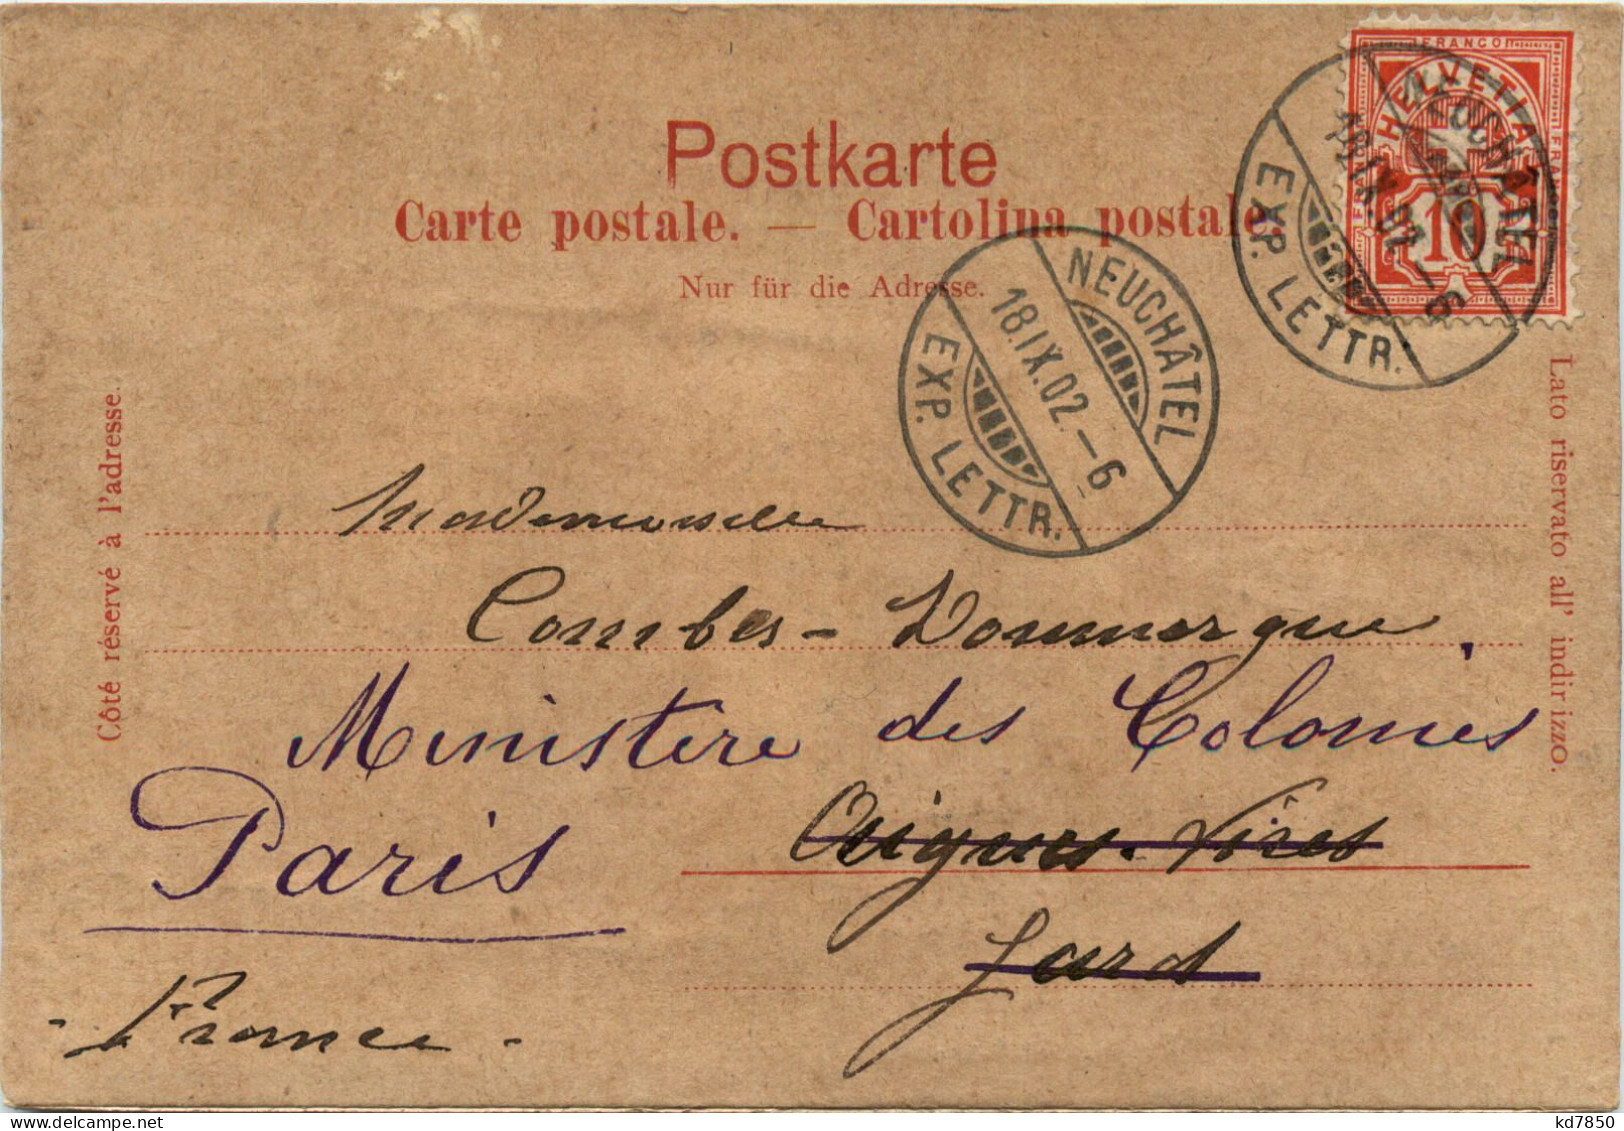 FRANCO
HELVETIA
10
NEUCHÂTEL
18.IX.02.–6
EXP. LETTR.
Postkarte
Carte postale. — Cartolina postale.
Nur für die Adresse.
NEUCHÂTEL
18.IX.02.–6
EXP. LETTR.
Côté réservé à l'adresse.
Lato riservato all' indirizzo.
Mademoiselle
Combes-Doumergue
Ministère des Colonies
Paris
Aigues-Vives
Gard
- France -
kd7850